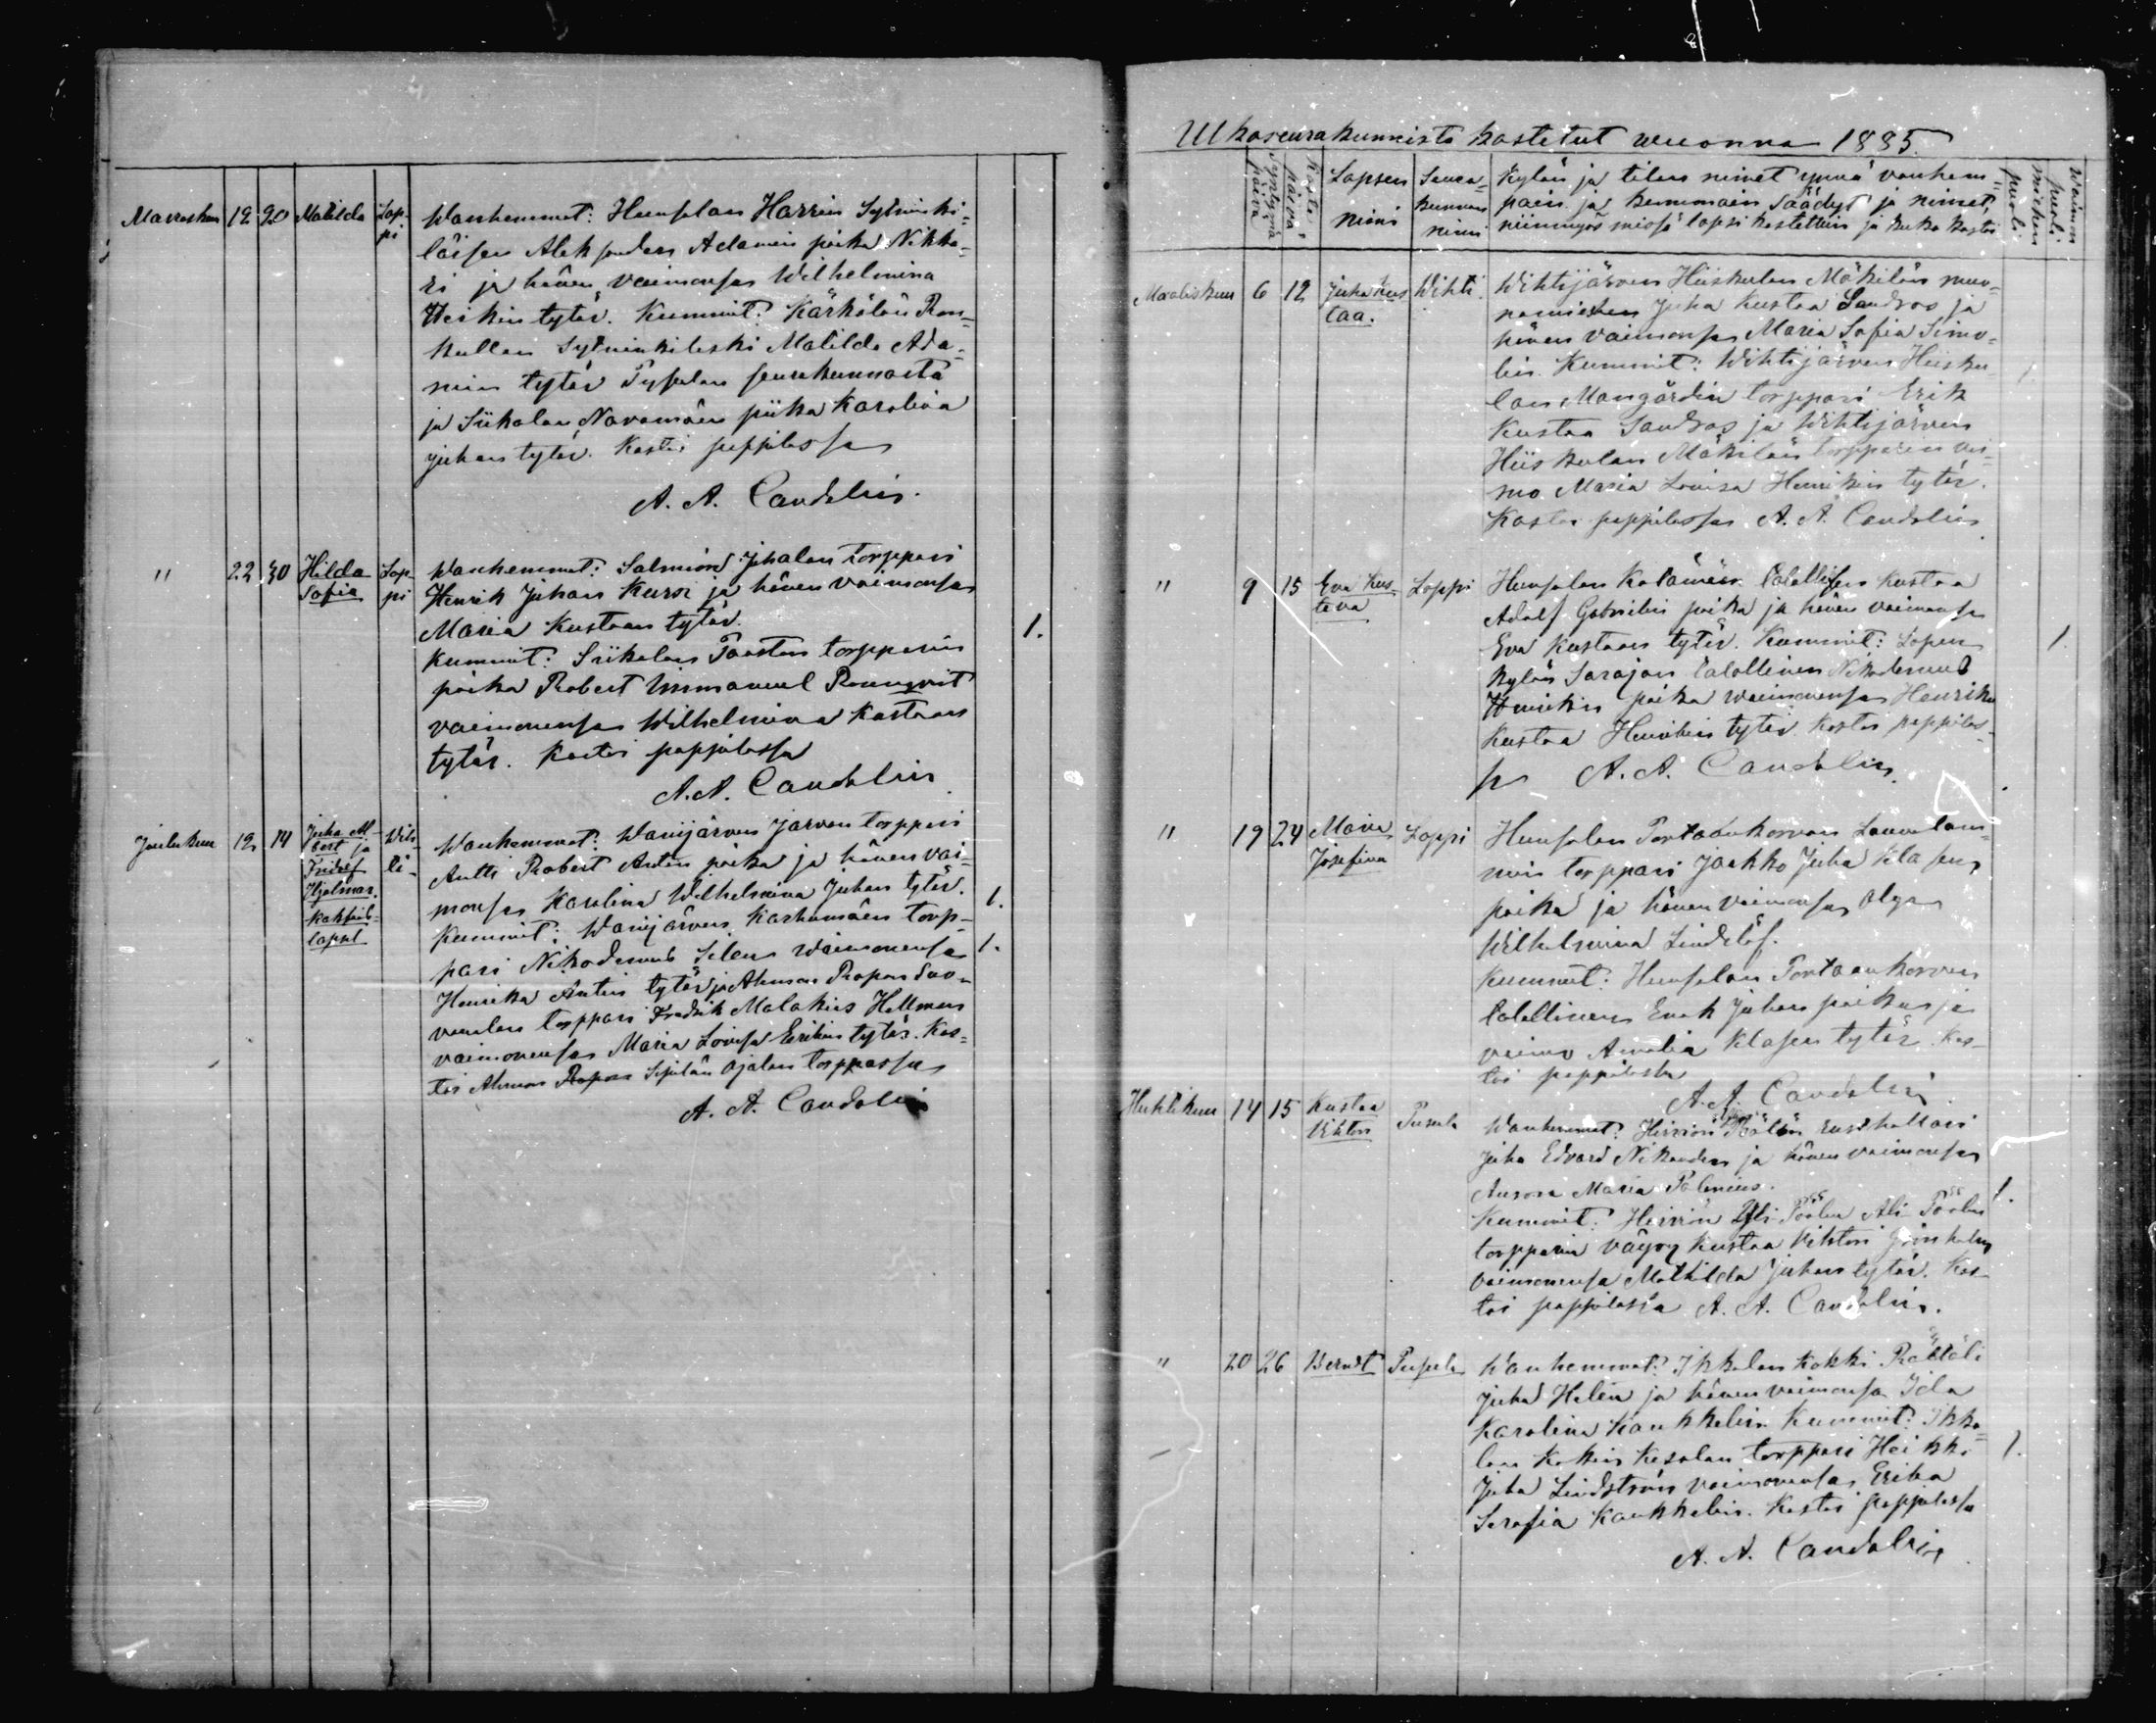 Marraskuu 12 20 Matilda Lop-
pi
Wanhemmat: Hunsalan Harrin Sytninki-
läisen Aleksanders Adamin poika Nikka-
ri ja hänen vaimonsa Wilhelmina
Heikin tytär. Kummit: Kärkölän Ron-
kullan Sytninkileski Matilda Ada-
min tytär Pusulan seurakunnasta
ja Siikalan Navamäen piika Karolina
Juhan tytär. Kasti pappilassa
A. A. Candelin.
" 22 30 Hilda
Sofia
Lop-
pi
Wanhemmat: Salmion Juhalan torppari
Henrik Juhan Kursi ja hänen vaimonsa
Maria Kustaan tytär.
1.
Kummit: Siikalan Paastan torpparin
poika Robert Immanuel Rounqvist
vaimonensa Wilhelmina Kustaan
tytär. Kasti pappilassa
A. A. Candelin.
Joulukuu 12 14 Juha Al-
bert ja
Fridolf
Hjalmar.
kaksois-
lapset
Wih-
ti-
Wanhemmat: Wanjärven Jarvan torppari
Antti Robert Antin poika ja hänen vai-
monsa Karolina Wilhelmina Juhan tytär.
1.
Kummit: Wanjärven Karhumäen torp-
pari Nikodemus Selen waimonensa
1.
Henrika Antin tytär ja Ahmon Ropon Suo-
vanlan torppari Fredrik Malakias Hellman
vaimonensa Maria Lovisa Erikin tytär. Kas-
toi Ahmon Ropon Sipilän Ojalan torpassa
A. A. Candelin
Ulkoseurakunnista kastetut wuonna 1885.
Syntymä
päivä
Kaste-
päivä
Lapsen
nimi
Seura-
kunnan
nimi
Kylän ja tilan nimet ynnä vanhem-
pain ja kummain Säädyt ja nimet,
niinmyös missä lapsi kastettiin ja kuka kasti
miehen
puoli
Waimon
puoli
Maaliskuu 6 12 Juha Kus
taa.
Wihti
Wihtijärven Hiiskulan Mäkilän muo-
namiehen Juha Kustaa Sandros ja
hänen vaimonsa Maria Sofia Simo-
lin. Kummit: Wihtijärven Hiisku-
lan Mangärdin torppari Erik
Kustaa Sandros ja Wihtijärven
Hiiskulan Mäkilän torpparin vai-
mo Maria Lovisa Henrikin tytär.
Kastoi pappilassa A. A. Candelin
" 9 15 Eva Kus-
tava
Loppi
Hunsalan Kolämäen talollisen Kustaa
Adolf Gabrielin poika ja hänen vaimonsa
Eva Kustaan tytär. Kummit: Lopen
1.
kylän Sarajan talollinen Nikodemus
Henrikin poika waimonensa Henrika
Kustaa Henrikin tytär. Kastoi pappilas-
sa A. A. Candelin.
" 19 24 Maria
Josefina
Loppi
Hunsalan Portaankorvan Lauvalam-
min torppari Jaakko Juha Klasen
poika ja hänen vaimonsa Olga
Wilhelmina Lindelöf.
Kummit: Hunsalan Portaankorven
talollinen Enok Juhan poika ja
vaimo Amalia Klasen tytär. Kas-
toi pappilassa
A. A. Candelin
Huhtikuu 14 15 Kustaa
Viktori
Pusula
Wanhemmat: Hirvion Töölön rusthollari
Juha Edvard Nikander ja hänen vaimonsa
Aurora Maria Palenius.
1.
Kummit: Hirvion Yli Töölön Ali Töölön
torpparin vävy Kustaa Viktori Grönholm
vaimonensa Mathilda Juhan tytär. Kas-
toi pappilassa A. A. Candelin.
" 20 26 Berndt Pusula
Wanhemmat: Ikkalan Kokki Räätäli
Juha Helin ja hänen vaimonsa Ida
Karolina Kaukkelin. Kummit: Ikka-
lan Kokin Kesalan torppari Heikki
1.
Juha Lindström vaimonensa Erika
Serafia Kaukkelin. Kastoi pappilassa
A. A. Candelin